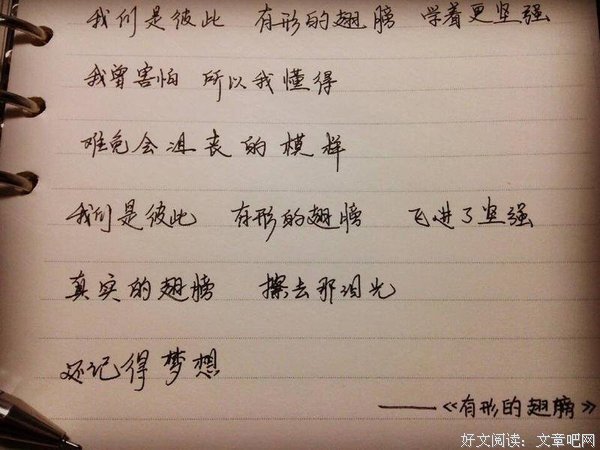 我们是彼此 有形的翅膀 学着更坚强
我曾害怕 所以我懂得
难免会沮丧的模样
我们是彼此 有形的翅膀 飞进了坚强
真实的翅膀 擦去那泪光
还记得梦想
——《有形的翅膀》
好文阅读：文章吧网